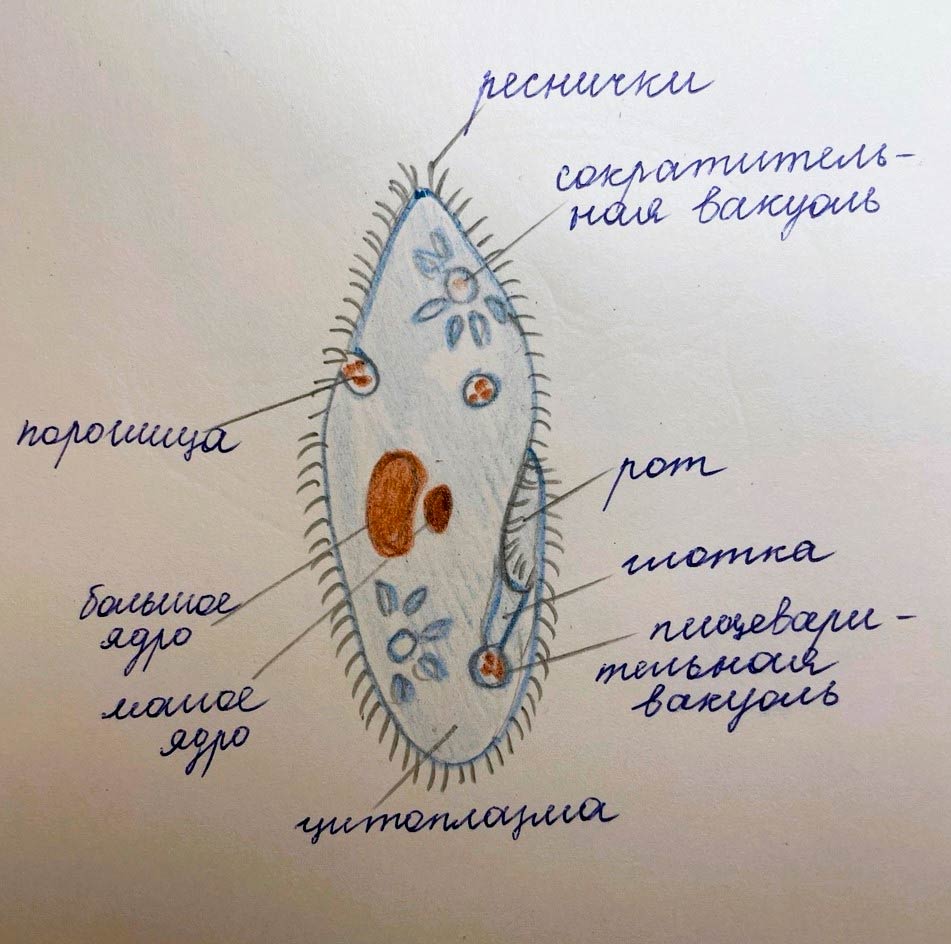 реснички
сократитель-
ная вакуоль
порошица
рот
глотка
большое
ядро
пищевари-
тельная
вакуоль
малое
ядро
цитоплазма